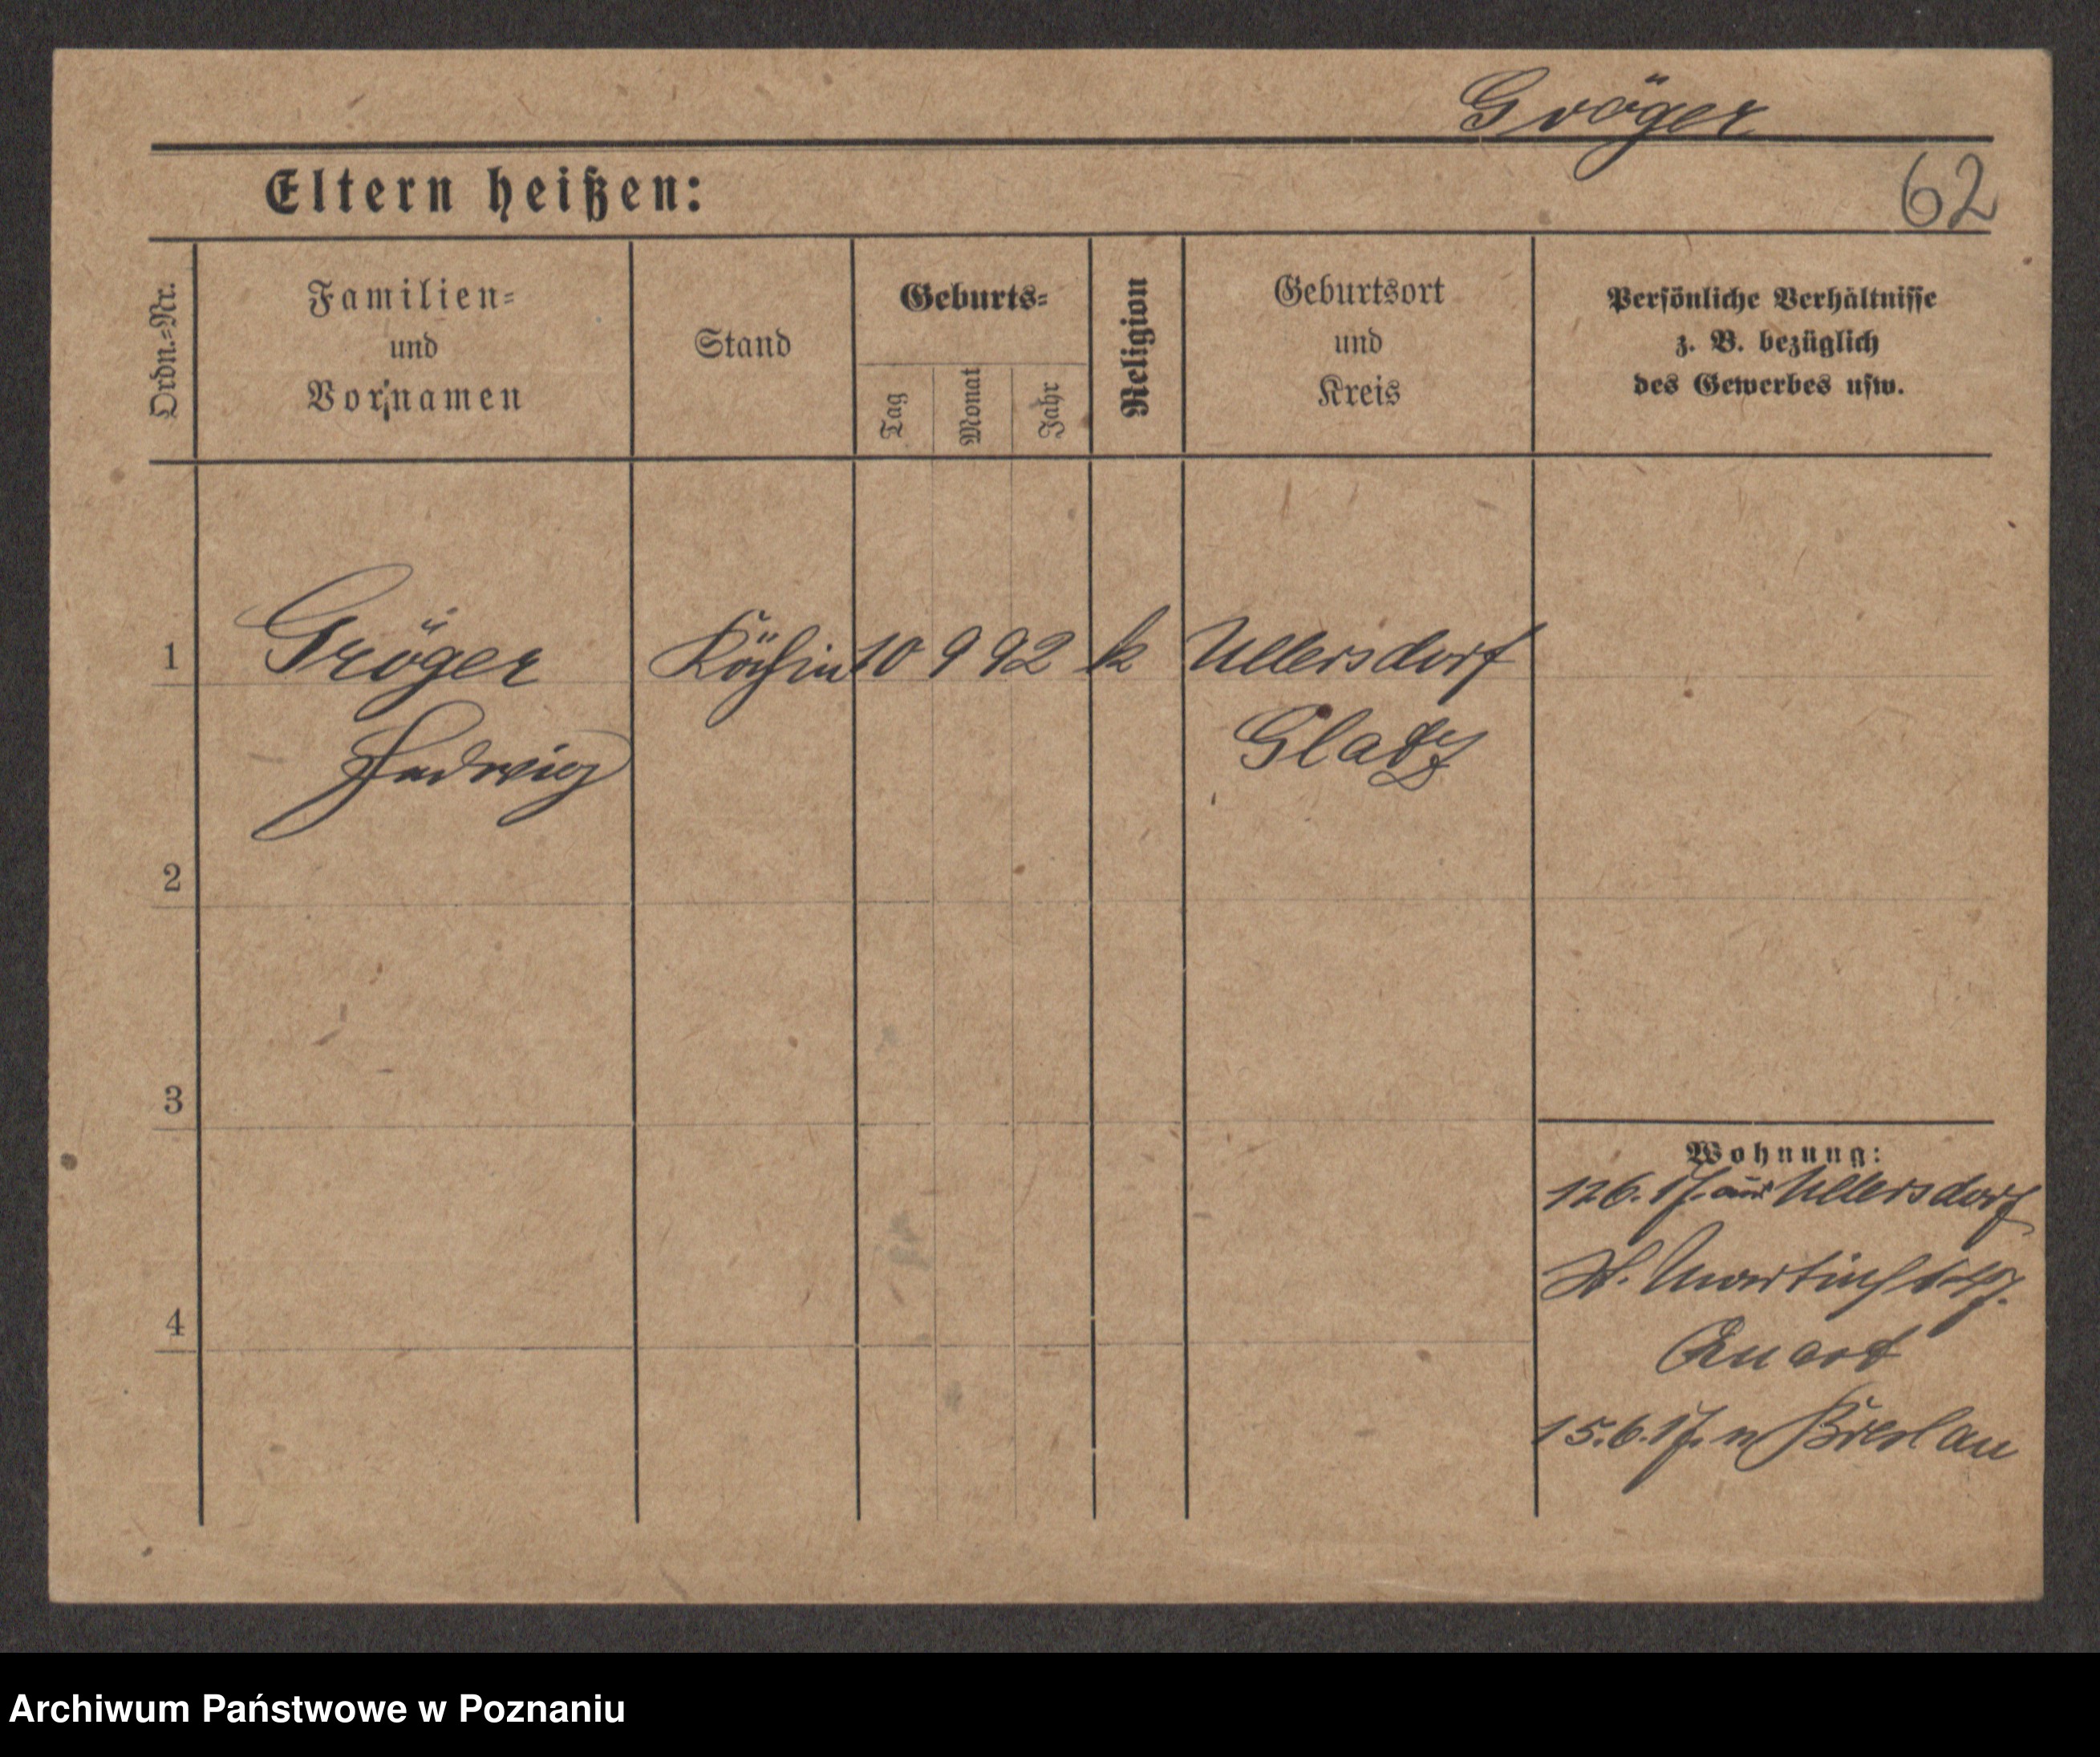 Gröger
Eltern heißen:
62
Ordn.=Nr.
Familien=
und
Vornamen
Stand
Geburts=
Tag
Monat
Jahr
Religion
Geburtsort
und
Kreis
Persönliche Verhältnisse
z. B. bezüglich
des Gewerbes usw.
1 Gröger Köchin 10 9 92 k Ullersdorf
Hedwig Glatz
2
3
4
Wohnung:
12.6.17. aus Ullersdorf
St. Martinstr
15.6.17. n Breslau
Archiwum Państwowe w Poznaniu